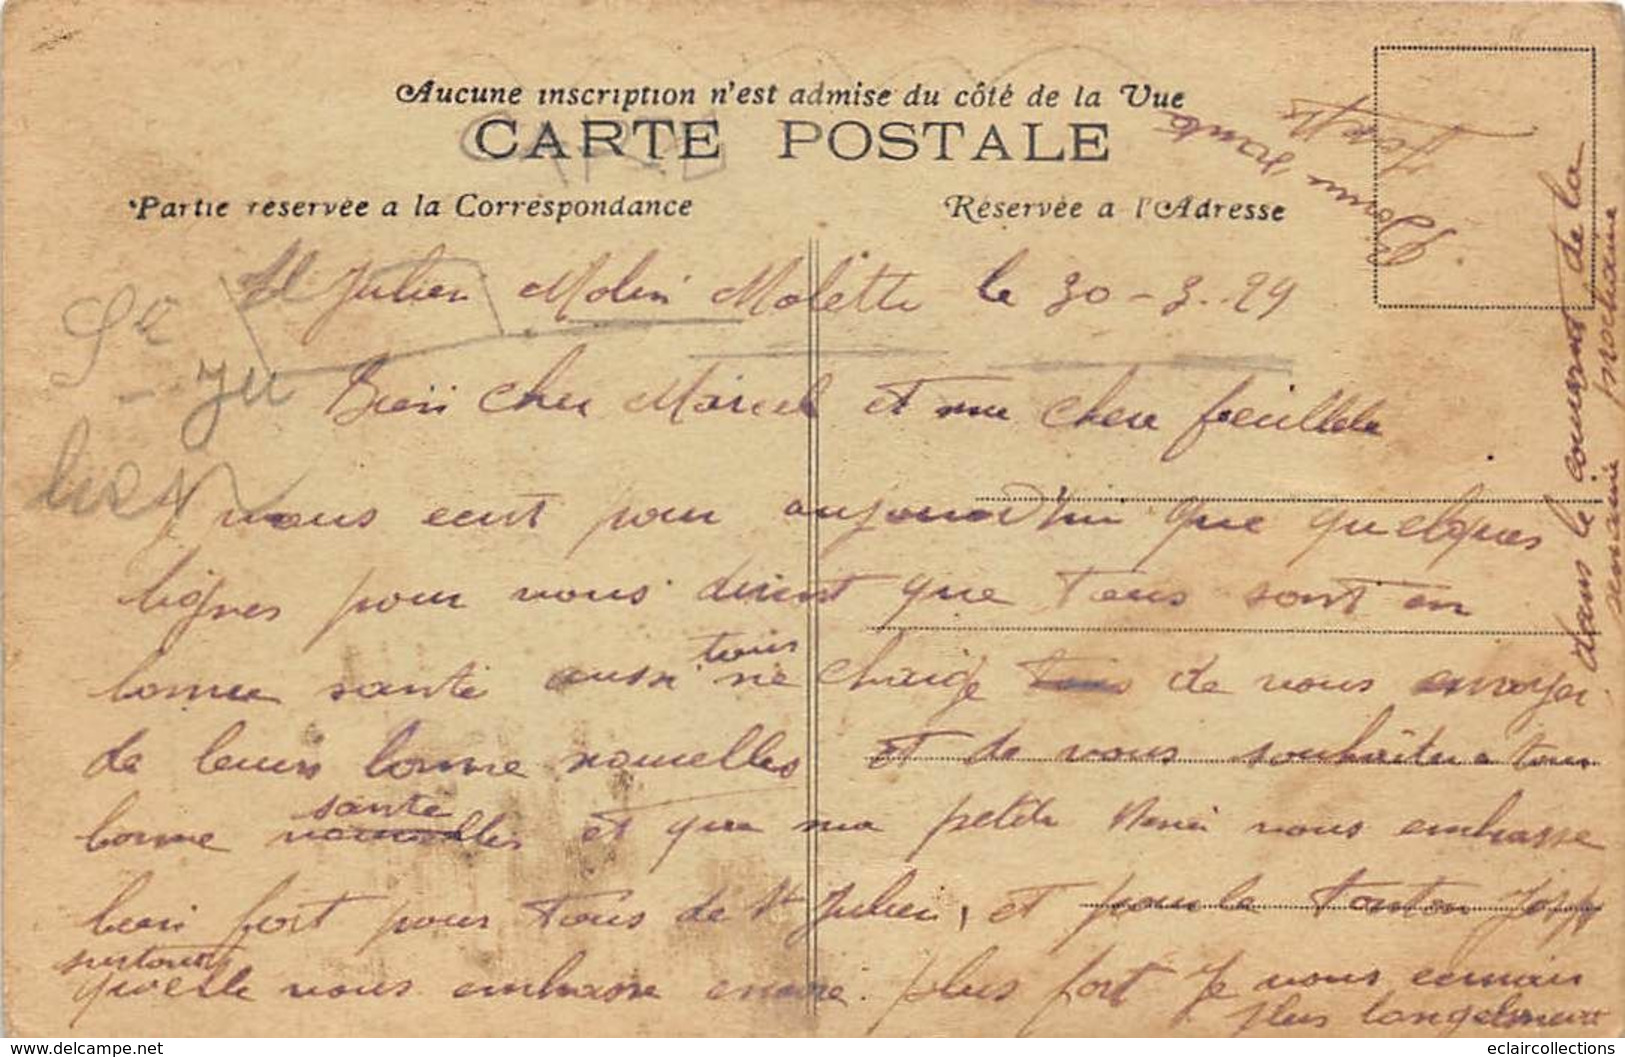 Aucune inscription n'est admise du côté de la Vue
CARTE POSTALE
Partie réservée a la Correspondance
Réservée a l'Adresse
St Julien Molin Molette le 30-3-29
St
Ju
lien
Bien cher Marcel et ma chere
J vous ecrit pour aujourd'hui que quelques
lignes pour vous dirent que tous sont en
bonne santé aussi tous me charge de vous envoyer
de leurs bonne nouvelles et de vous souhaiter a tous
bonne santé et que ma petite vous embrasse
bien fort pour tous de St Julien, et pour le tonton Joseph
surtout
qu'elle vous embrasse encore plus fort Je vous ecrirais
plus longuement
dans le courant de la
semaine prochaine
Joseph
eclaircollections